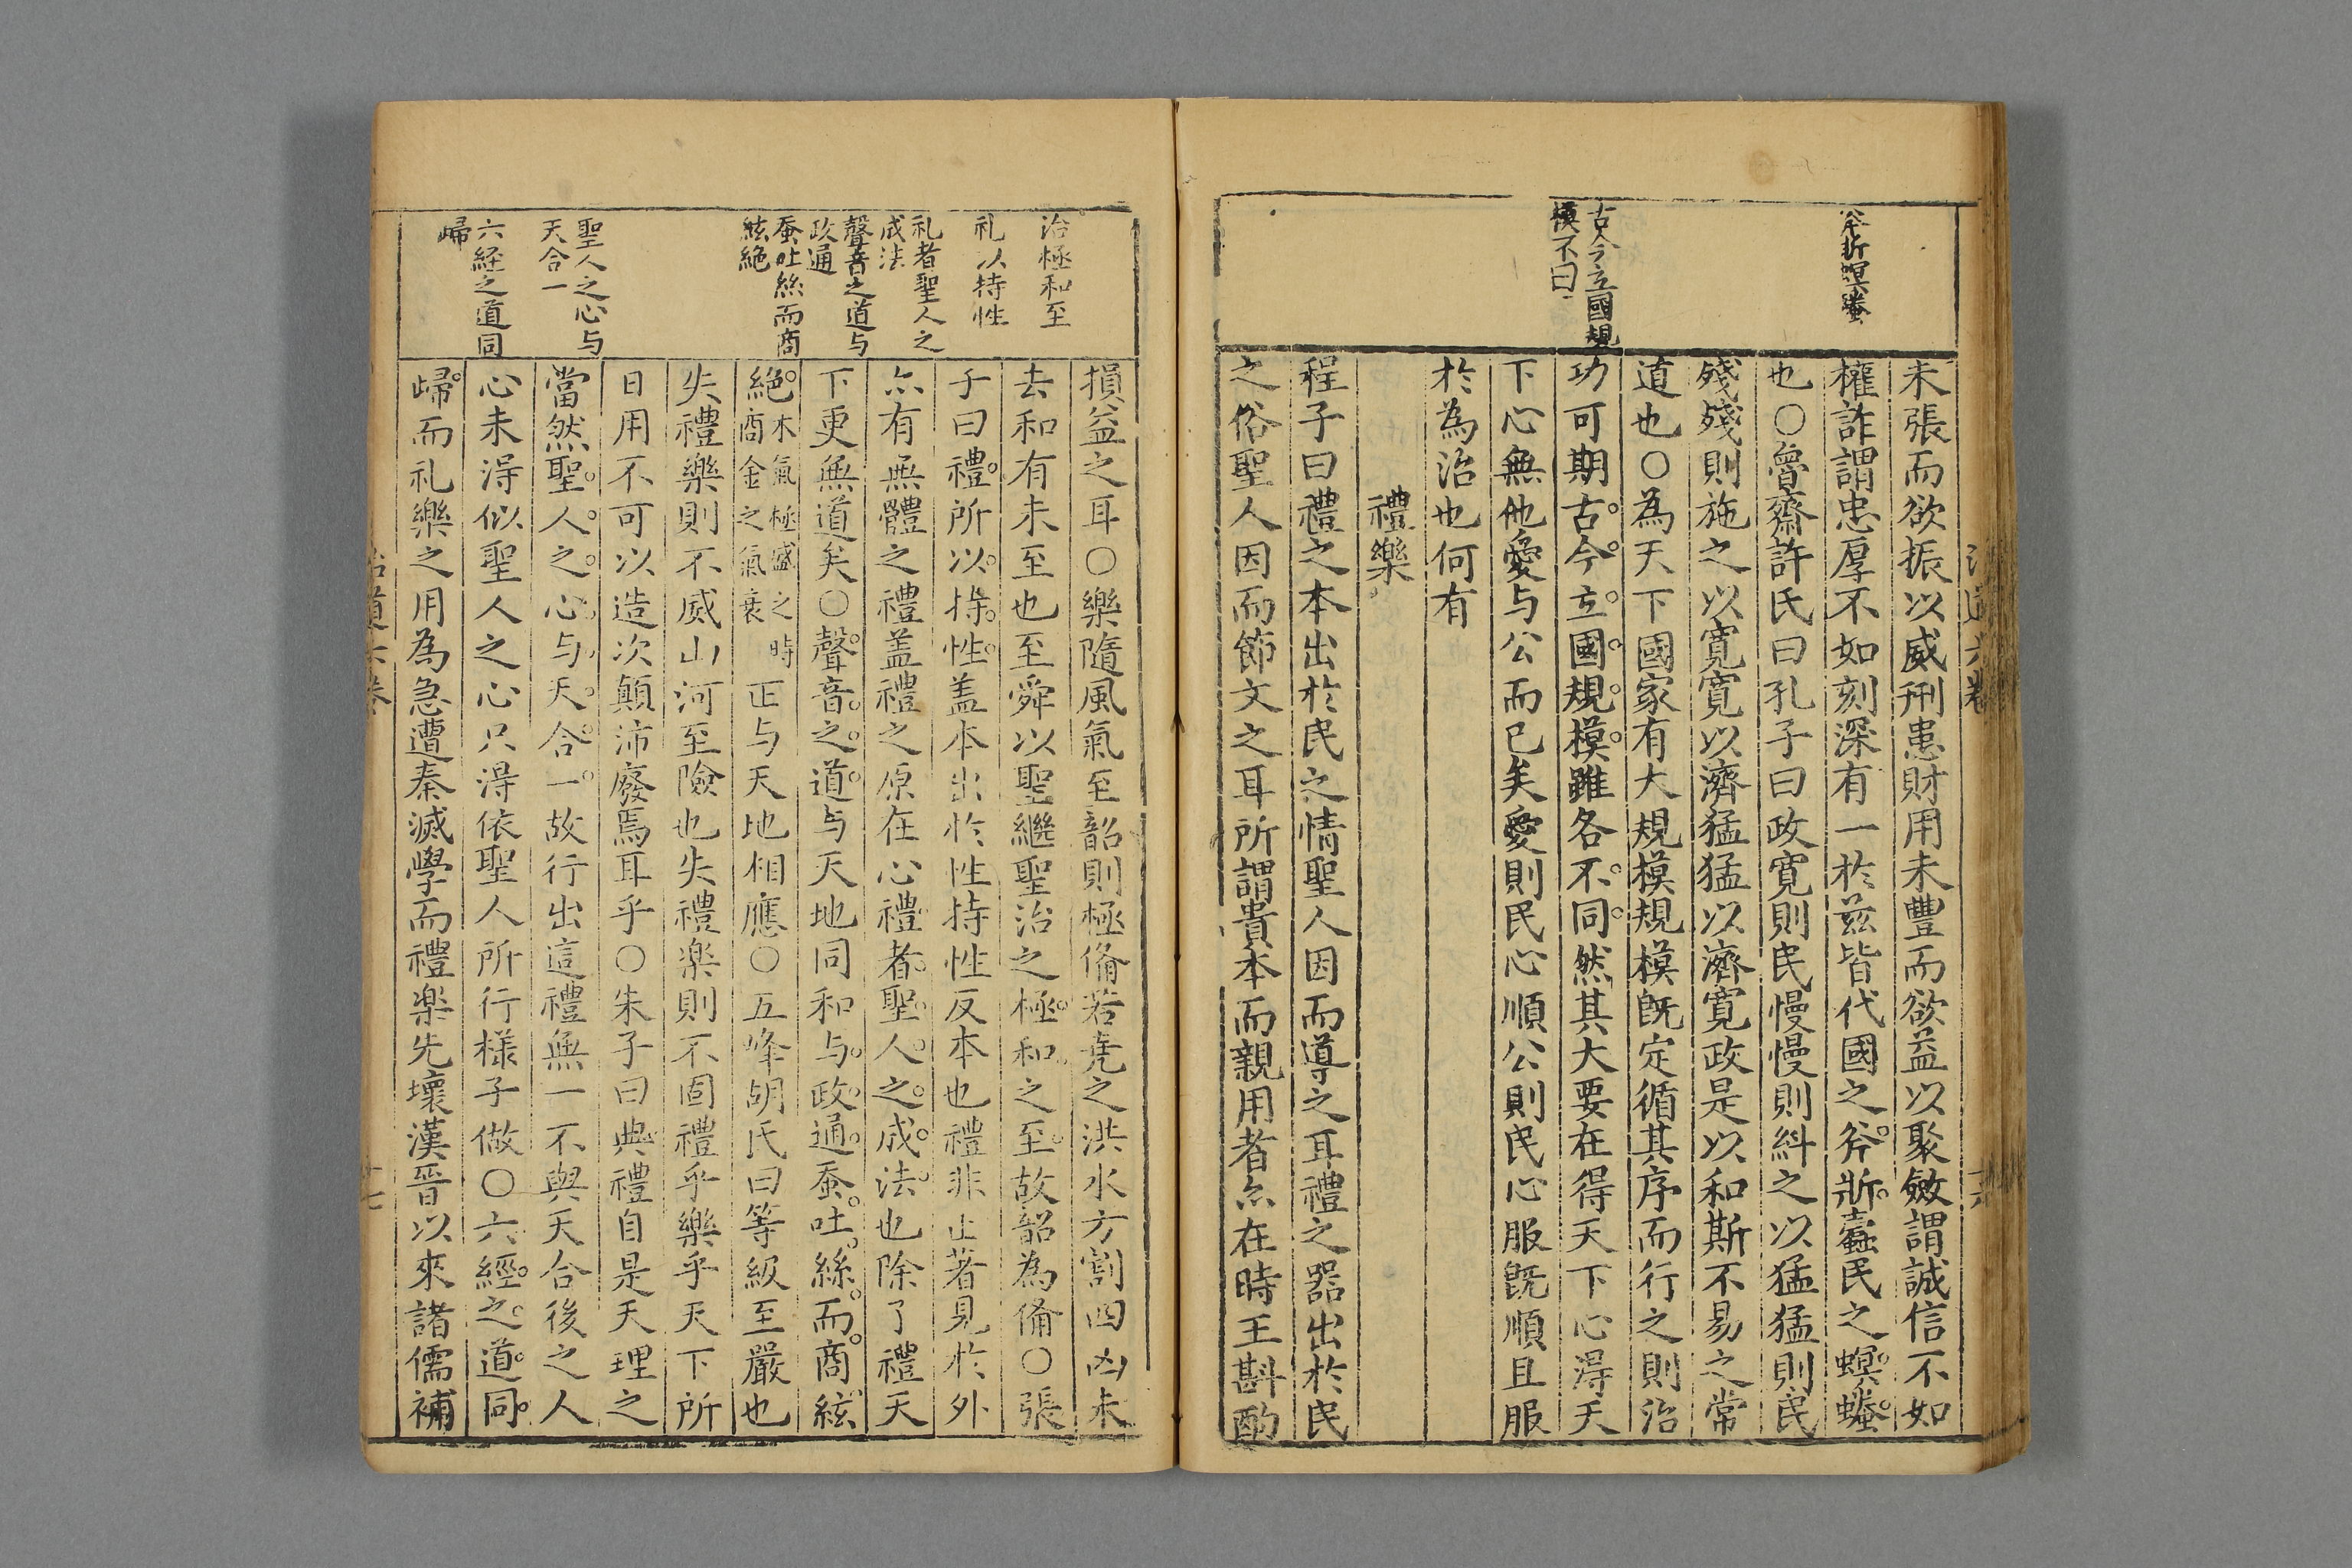 斧斨螟螣
古今立國規
模不曰
未張而欲振以威刑患財用未豐而欲益以聚斂謂誠信不如
權詐謂忠厚不如刻深有一於茲皆代國之斧斨蠹民之螟螣
也〇魯齋許氏曰孔子曰政寛則民慢慢則糾之以猛猛則民
殘殘則施之以寛寛以濟猛猛以濟寛政是以和斯不易之常
道也〇為天下國家有大規模規模既定循其序而行之則治
功可期古今立國規模雖各不同然其大要在得天下心淂天
下心無他愛与公而已矣愛則民心順公則民心服既順且服
於為治也何有
禮樂
程子曰禮之本出於民之情聖人因而導之耳禮之器出於民
之俗聖人因而節文之耳所謂貴本而親用者亦在時王斟酌
治極和至
礼以持性
礼者聖人之
成法
聲音之道与
政通
蚕吐絲而商
絃絶
聖人之心与
天合一
六経之道同
歸
損益之耳〇樂隨風氣至韶則極脩若堯之洪水方割四凶未
去和有未至也至舜以聖繼聖治之極和之至故韶為俻〇張
子曰禮所以持性盖本出於性持性反本也禮非止著見於外
亦有無體之禮盖禮之原在心禮者聖人之成法也除了禮天
下更無道矣〇聲音之道与天地同和与政通蚕吐絲而商絃
絶木氣極盛之時商金之氣衰正与天地相應〇五峰胡氏曰等級至嚴也
失禮樂則不威山河至險也失禮楽則不固禮乎樂乎天下所
日用不可以造次顛沛廢焉耳乎〇朱子曰典禮自是天理之
當然聖人之心与天合一故行出這禮無一不與天合後之人
心未淂似聖人之心只淂依聖人所行樣子做〇六經之道同
歸而礼樂之用為急遭秦滅學而禮楽先壞漢晉以來諸儒補